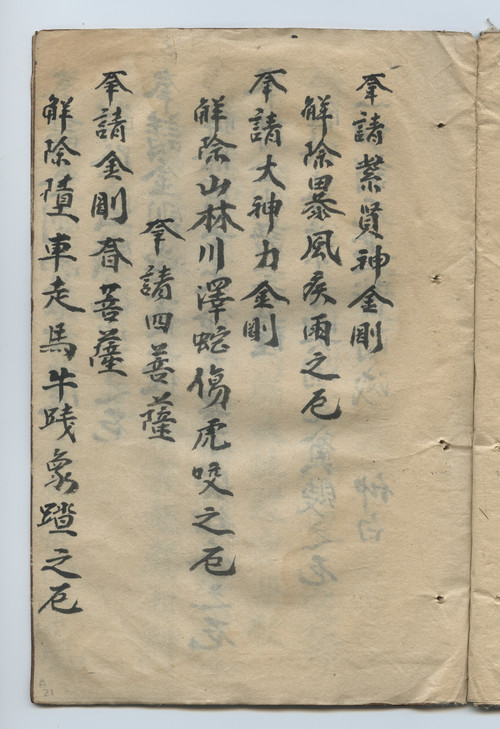 奉請紫賢神金剛
解除暴風疾雨之厄
奉請大神力金剛
解除山林川澤蛇傷虎咬之厄
奉請四菩薩
奉請金剛眷菩薩
解除墮車走馬牛踐象踏之厄
A
21